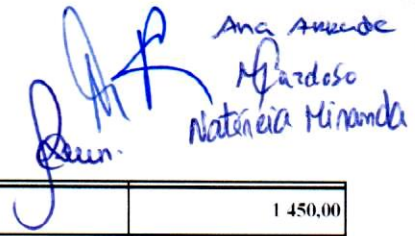 Ana Arruda
MCardoso
Natércia Miranda
1 450,00